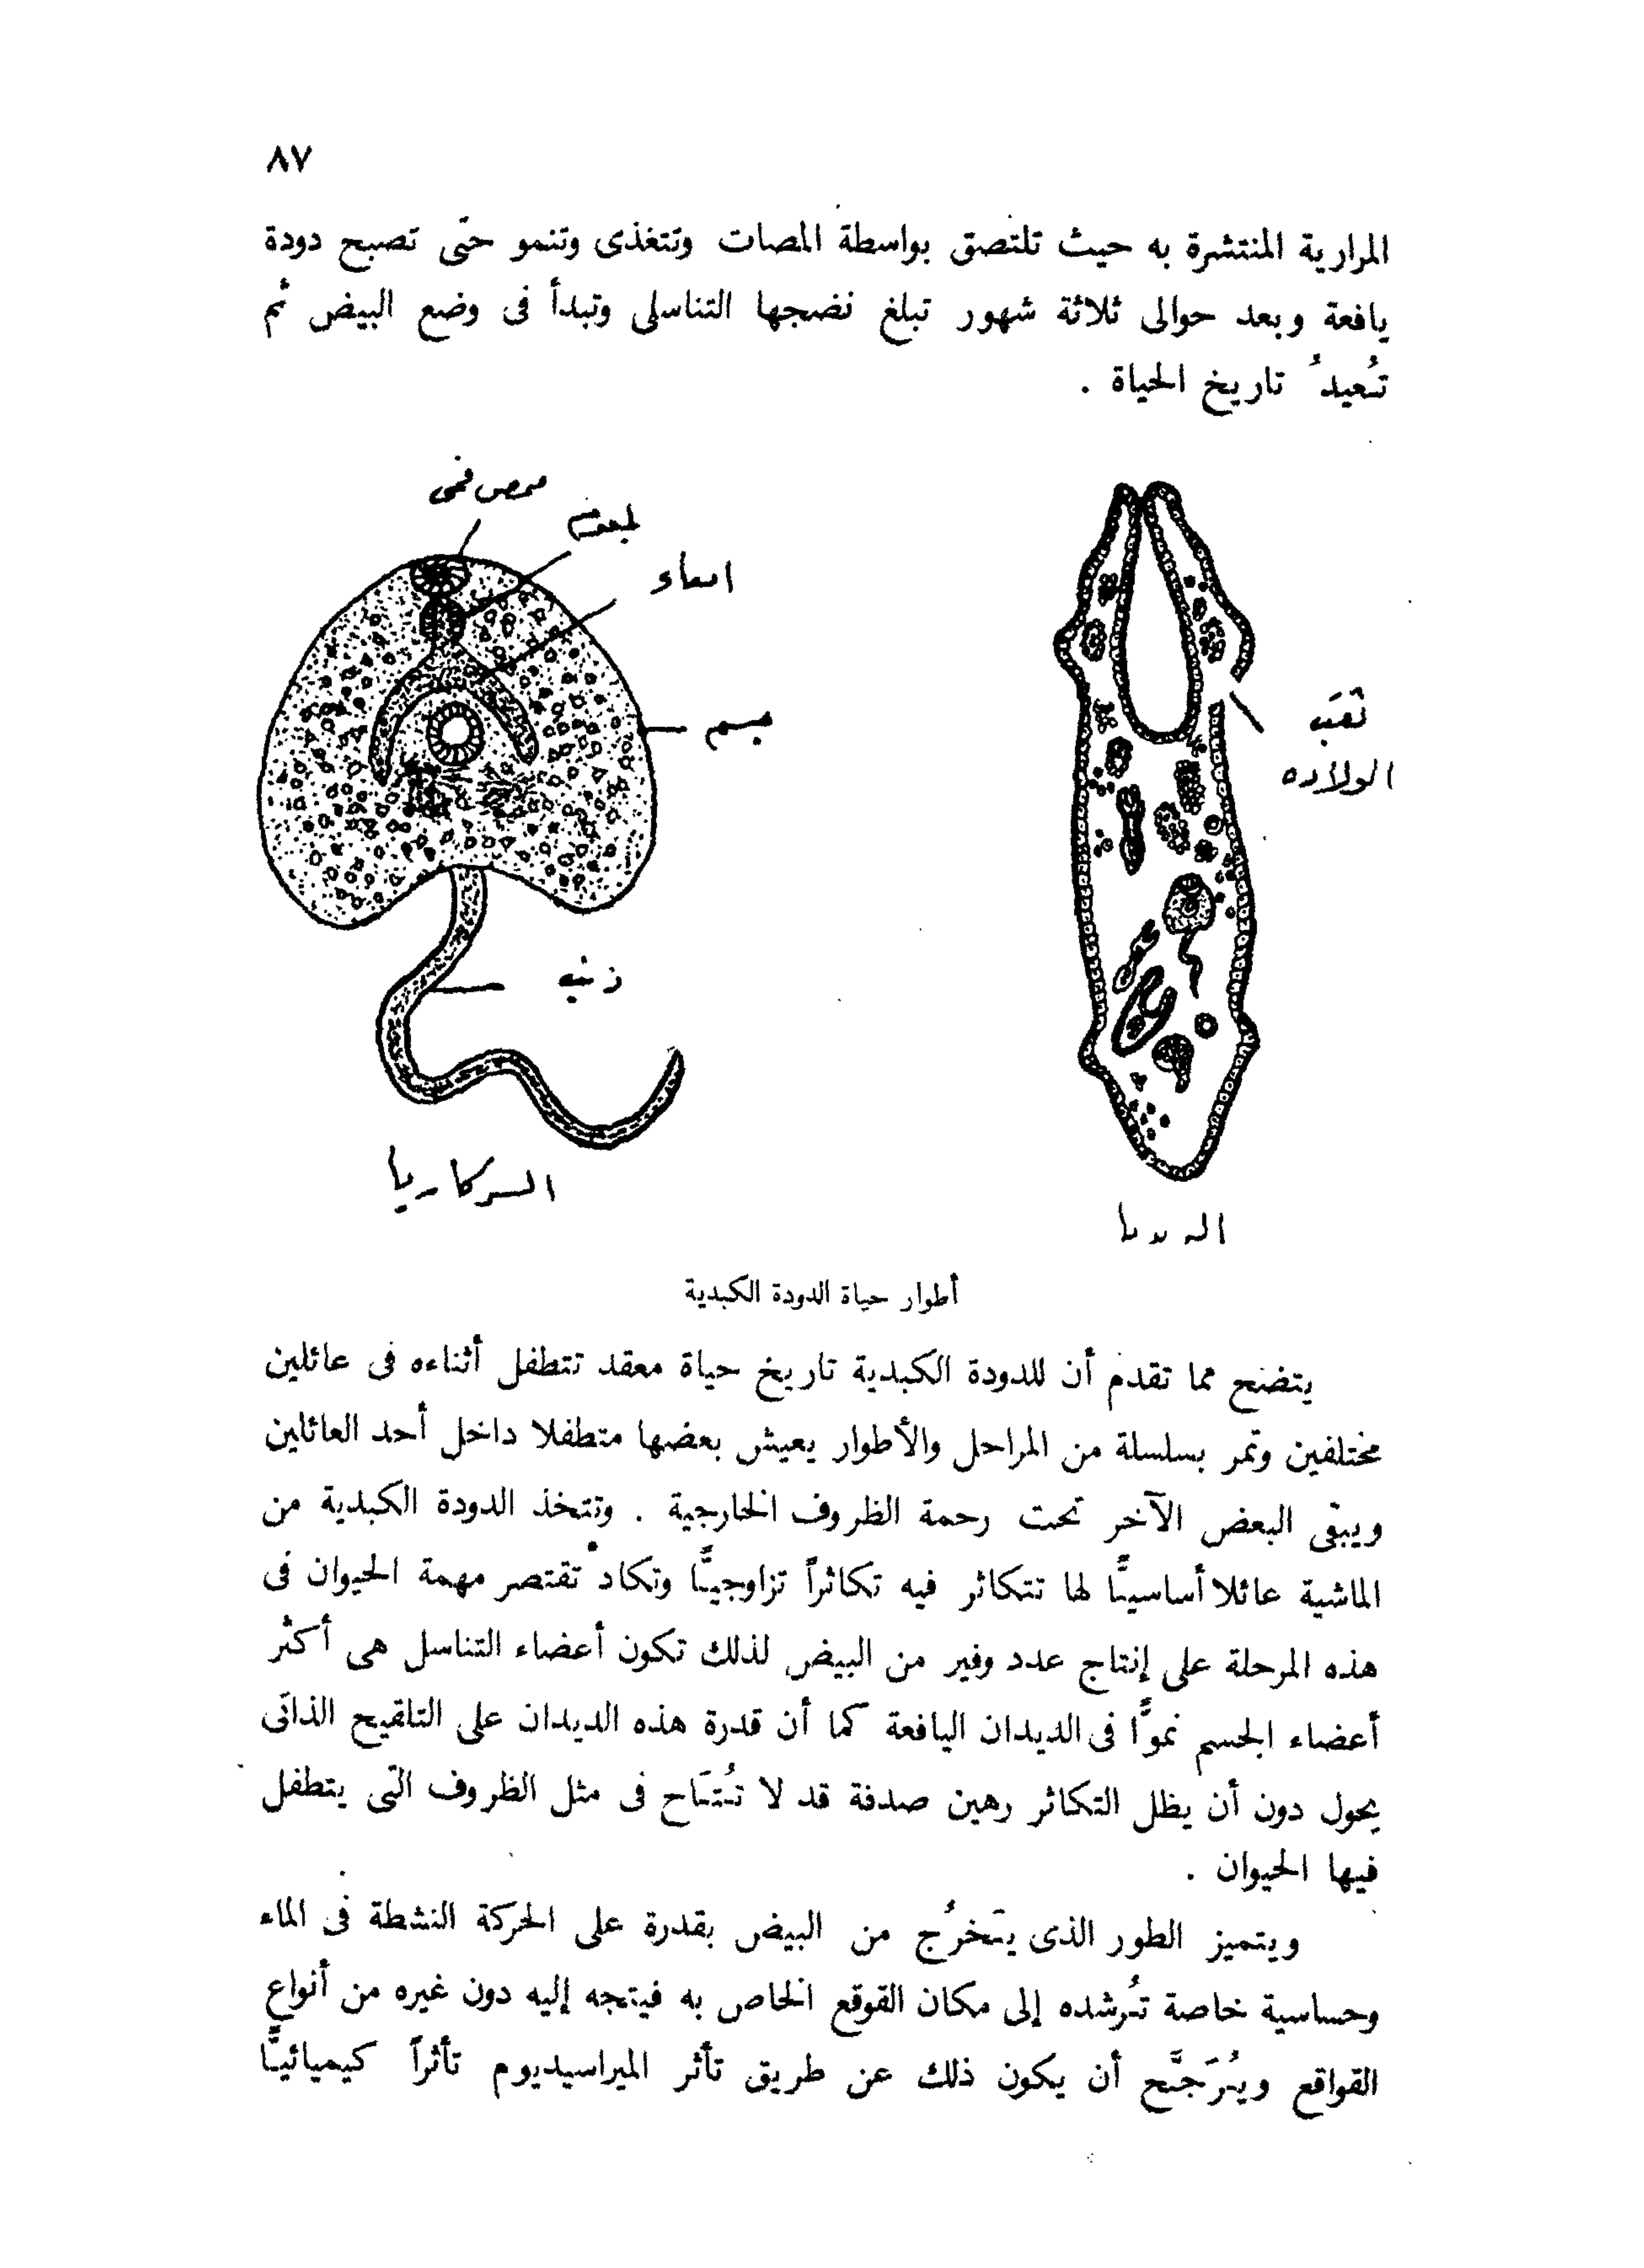 ٨٧
المرارية المنتشرة به حيث تلتصق بواسطة الممصات وتتغذى وتنمو حتى تصبح دودة
يافعة وبعد حوالى ثلاثة شهور تبلغ نضجها التناسلى وتبدأ فى وضع البيض ثم
تُعيدُ تاريخ الحياة .
ممص فمى
بلعوم
امعاء
جسم
ذنب
السركاريا
ثقب
الولاده
أطوار حياة الدودة الكبدية
يتضح مما تقدم أن للدودة الكبدية تاريخ حياة معقد تتطفل أثناءه فى عائلين
مختلفين وتمر بسلسلة من المراحل والأطوار يعيش بعضها متطفلا داخل أحد العائلين
ويبقى البعض الآخر تحت رحمة الظروف الخارجية . وتتخذ الدودة الكبدية من
الماشية عائلا أساسيًّا لها تتكاثر فيه تكاثراً تزاوجيًّا وتكاد تقتصر مهمة الحيوان فى
هذه المرحلة على إنتاج عدد وفير من البيض لذلك تكون أعضاء التناسل هى أكثر
أعضاء الجسم نموًّا فى الديدان اليافعة كما أن قدرة هذه الديدان على التلقيح الذاتى
يحول دون أن يظل التكاثر رهين صدفة قد لا تُتَاح فى مثل الظروف التى يتطفل
فيها الحيوان .
ويتميز الطور الذى يَخرُج من البيض بقدرة على الحركة النشطة فى الماء
وحساسية خاصة تُرشده إلى مكان القوقع الخاص به فيتجه إليه دون غيره من أنواع
القواقع ويُرَجَّح أن يكون ذلك عن طريق تأثر الميراسيديوم تأثراً كيميائيًّا